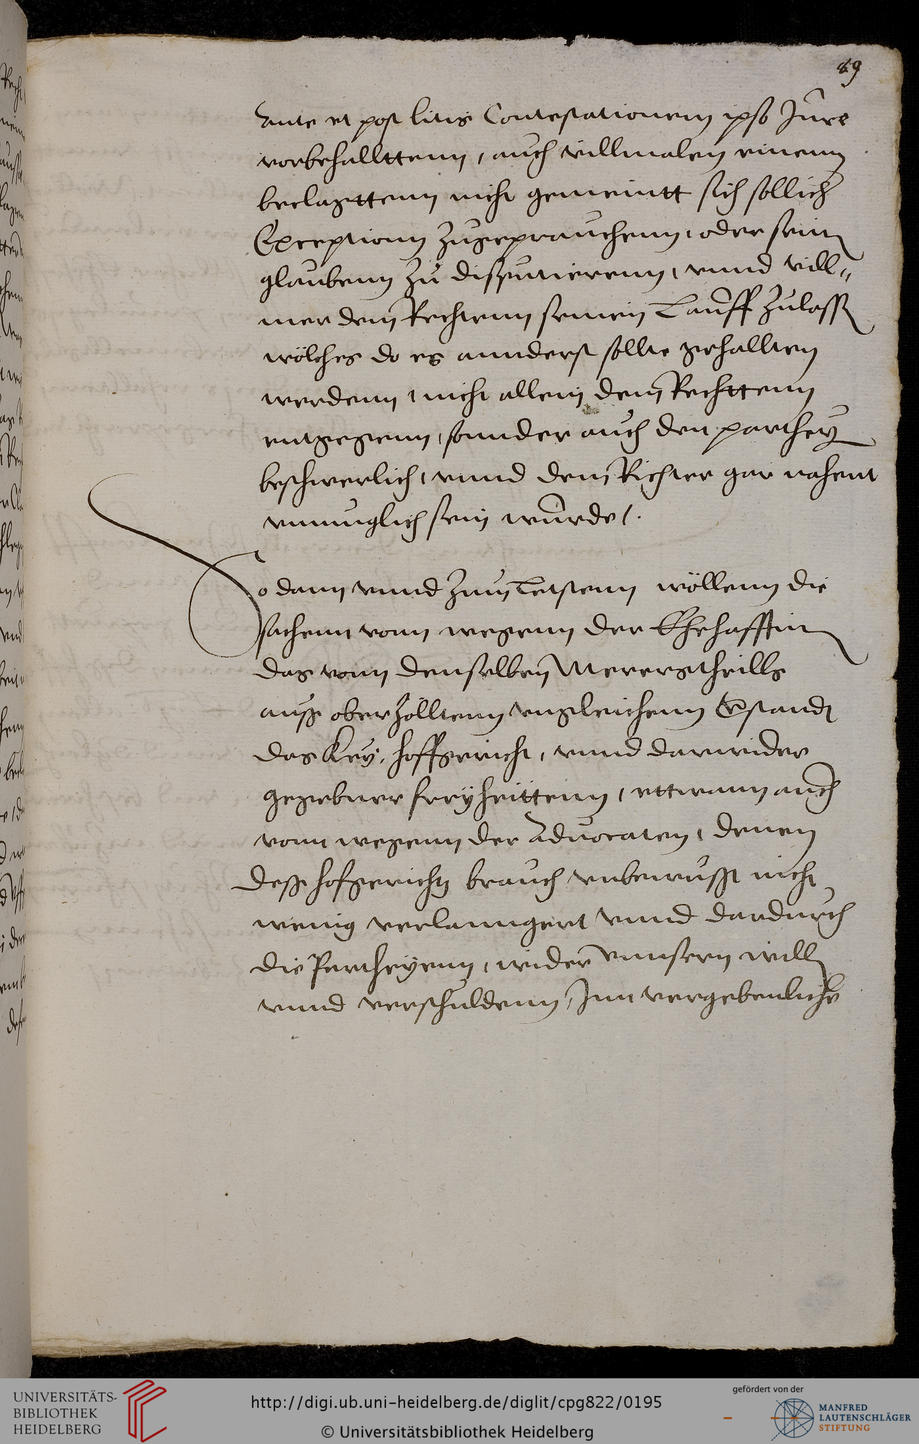 89
ante et post litis Contestationem ipso Jure
vorbehalttenn, auch villmalen einem
beclagttenn nicht gemeintt sich sollich
Exceptionn zugeprauchenn, oder sein
glaubenn zu disputierenn, unnd vill„
mer dem Rechtenn seinen Lauff zulassen
wölches do es annderst sollte gehallten
werdenn, nicht allein dem Rechttenn
entgegenn, sonnder auch den parthey
beschwerlich, unnd dem Richter gar nahent
unmuglich sein wurde.
So dann unnd zum Letstenn wöllenn die
sachenn vonn wegenn der Ehehafften
das vonn denselben Mererstheills
auss oberzöllten ungleichenn verstandt
das Key. hoffgericht, unnd darwider
gegebner freyheittenn, ettwann auch
vonn wegenn der Advocaten, denen
dess hofgerichtz brauch unbewusst nicht
wenig verlanngert unnd dardurch
die Partheyenn, wider unnsern willen
unnd verschuldenn, Inn vergebenliche
UNIVERSITÄTS-
BIBLIOTHEK
HEIDELBERG
http://digi.ub.uni-heidelberg.de/diglit/cpg822/0195
© Universitätsbibliothek Heidelberg
gefördert von der
MANFRED
LAUTENSCHLÄGER
STIFTUNG